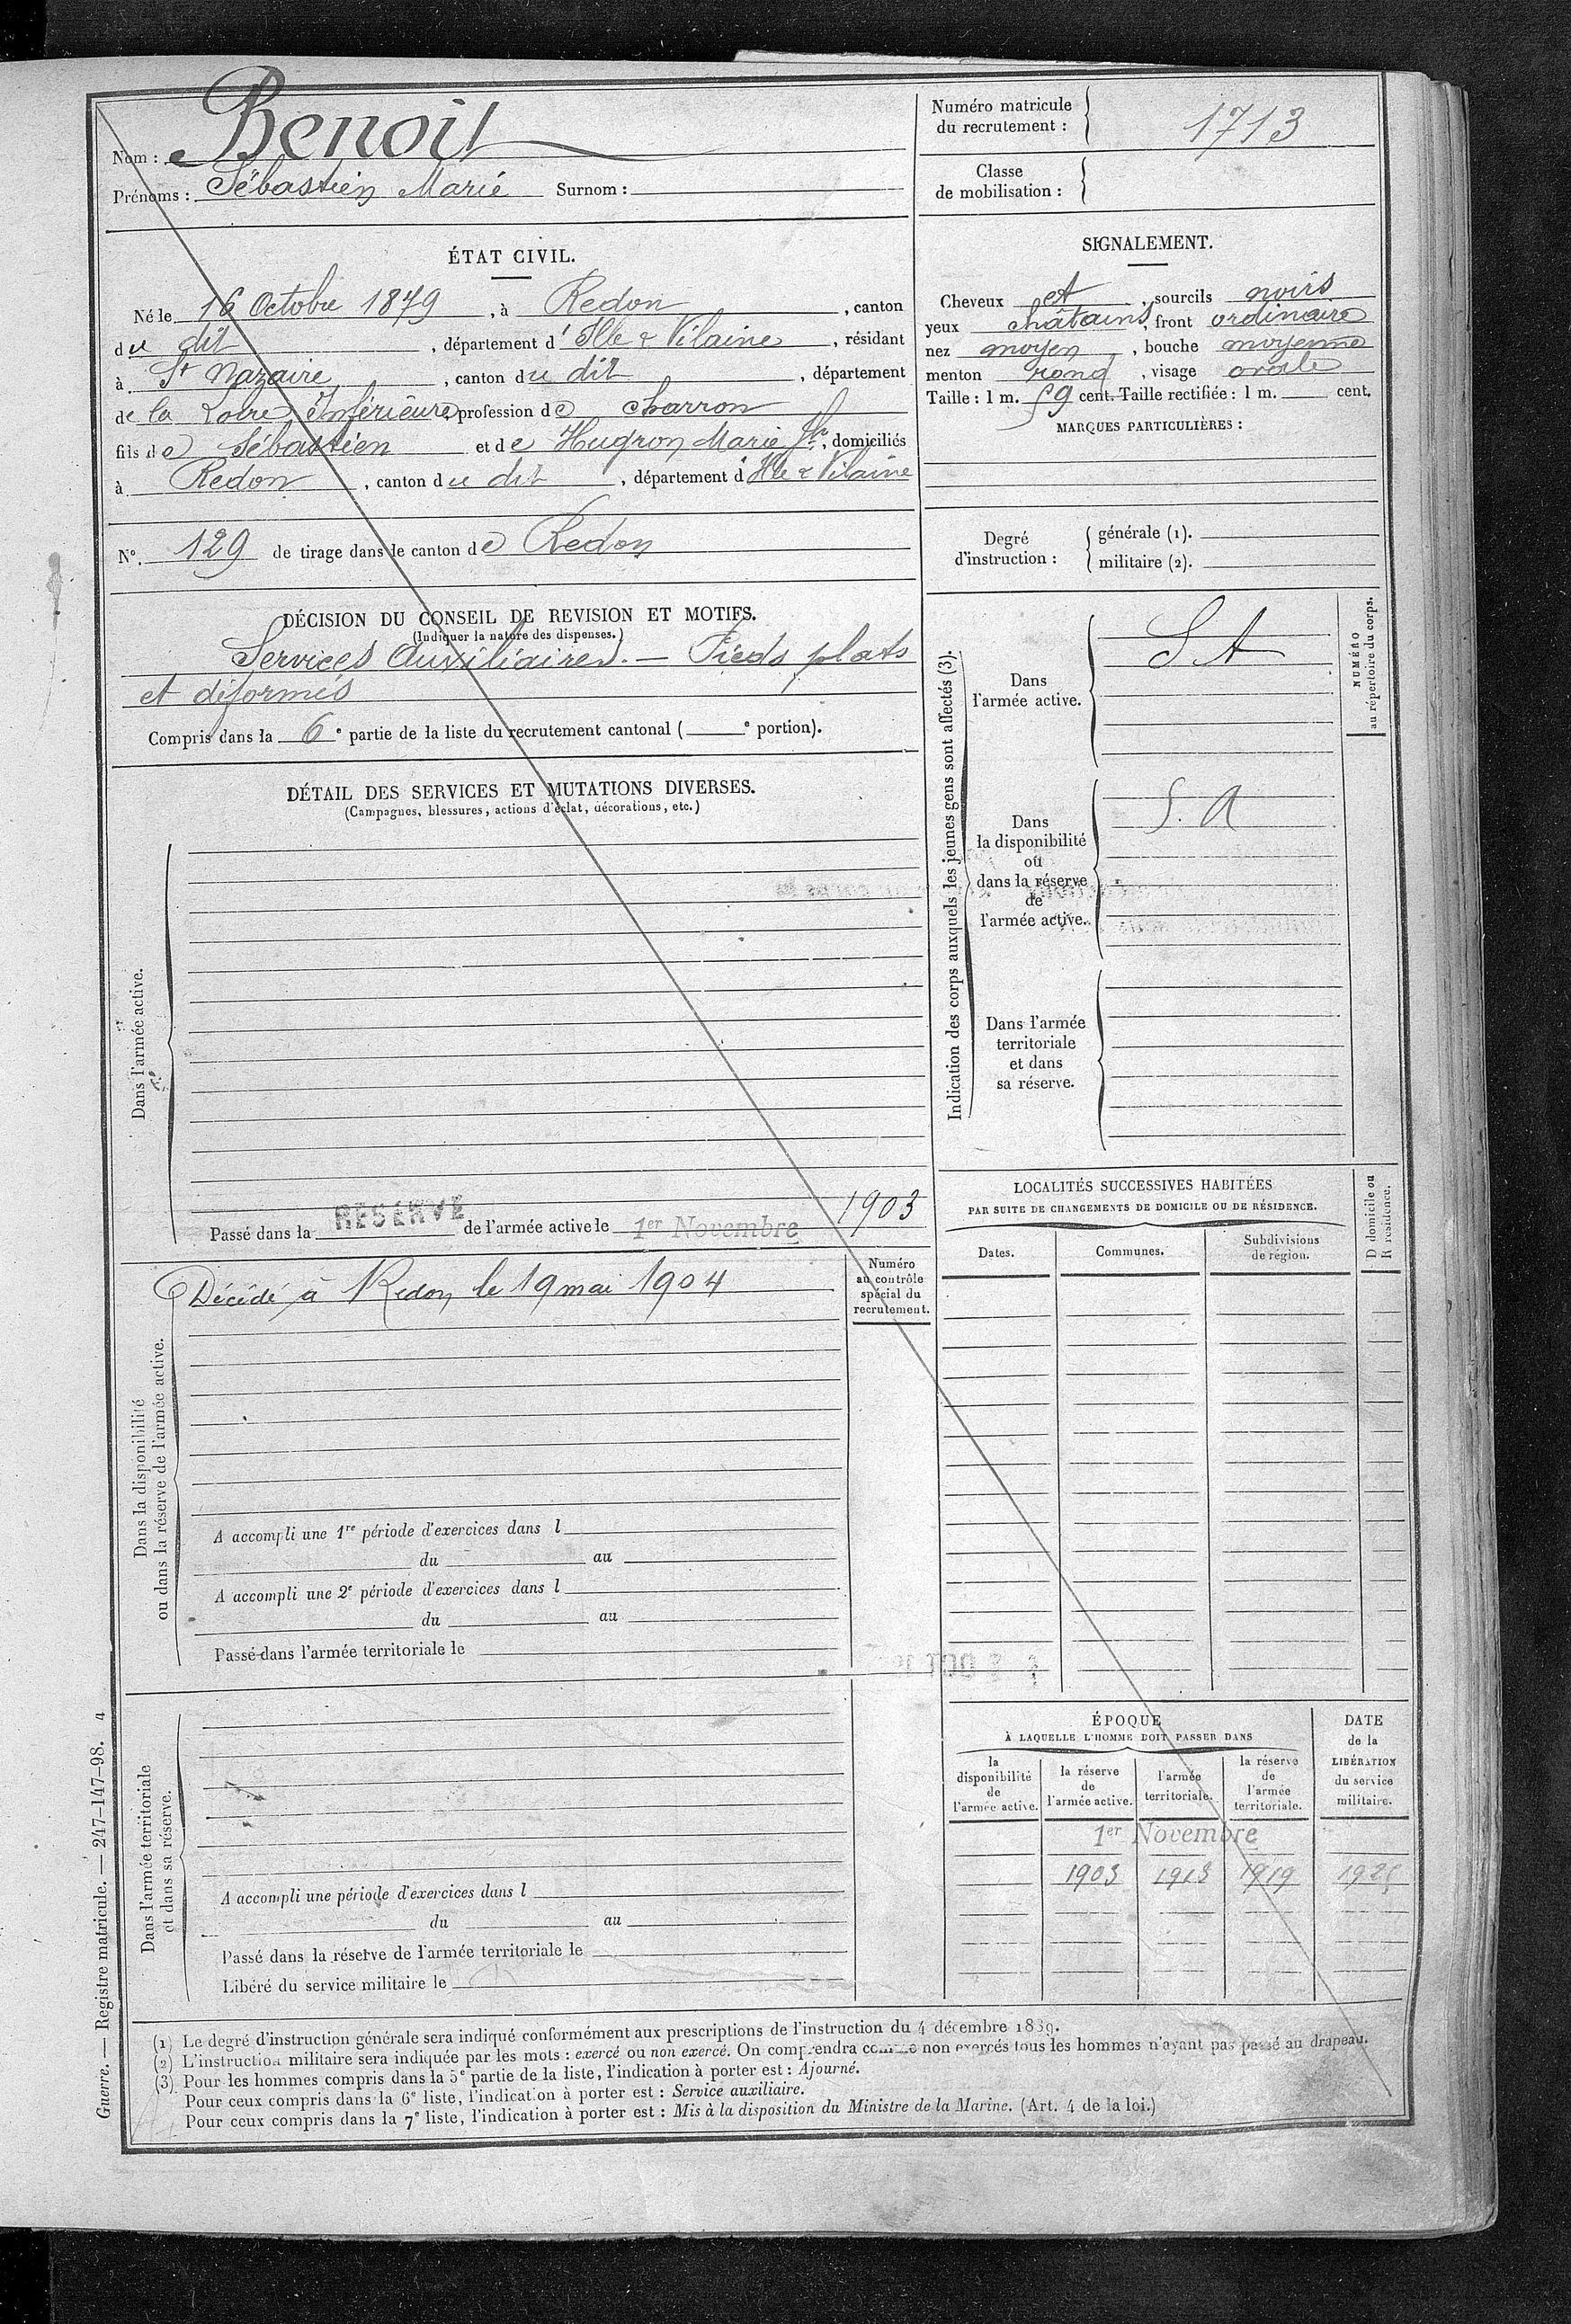 Nom : Benoit
Prénoms : Sébastien Marie Surnom :
Numéro matricule du recrutement : 1713
Classe de mobilisation :
ÉTAT CIVIL.
Né le 16 Octobre 1879, à Redon, canton
du dit, département d'Ille & Vilaine, résidant
à St Nazaire, canton du dit, département
de la Loire Inférieure, profession de charron
fils de Sébastien et de Hugron Marie, domiciliés
à Redon, canton du dit, département d'Ille & Vilaine
N°. 129 de tirage dans le canton de Redon
SIGNALEMENT.
Cheveux et, sourcils noirs
yeux châtains, front ordinaire
nez moyen, bouche moyenne
menton rond, visage ovale
Taille : 1 m. 59 cent. Taille rectifiée : 1 m. cent.
MARQUES PARTICULIÈRES :
Degré d'instruction :
générale (1).
militaire (2).
DÉCISION DU CONSEIL DE REVISION ET MOTIFS.
(Indiquer la nature des dispenses.)
Services Auxiliaires. — Pieds plats
et déformés
Compris dans la 6e partie de la liste du recrutement cantonal ( e portion).
DÉTAIL DES SERVICES ET MUTATIONS DIVERSES.
(Campagnes, blessures, actions d'éclat, décorations, etc.)
Dans l'armée active.
Passé dans la RÉSERVE de l'armée active le 1er Novembre 1903
Numéro
au contrôle
spécial du
recrutement.
Dans la disponibilité
ou dans la réserve de l'armée active.
Décédé à Redon le 19 mai 1904
A accompli une 1re période d'exercices dans l
du au
A accompli une 2e période d'exercices dans l
du au
Passé dans l'armée territoriale le
Dans l'armée territoriale
et dans sa réserve.
A accompli une période d'exercices dans l
du au
Passé dans la réserve de l'armée territoriale le
Libéré du service militaire le
Indication des corps auxquels les jeunes gens sont affectés (3).
NUMÉRO
au répertoire du corps.
Dans
l'armée active.
S A
Dans
la disponibilité
ou
dans la réserve
de
l'armée active.
S. A
Dans l'armée
territoriale
et dans
sa réserve.
LOCALITÉS SUCCESSIVES HABITÉES
PAR SUITE DE CHANGEMENTS DE DOMICILE OU DE RÉSIDENCE.
Dates.
Communes.
Subdivisions
de région.
D domicile ou
R résidence.
ÉPOQUE
À LAQUELLE L'HOMME DOIT PASSER DANS
la
disponibilité
de
l'armée active.
la réserve
de
l'armée active.
l'armée
territoriale.
la réserve
de
l'armée
territoriale.
DATE
de la
LIBÉRATION
du service
militaire.
1er Novembre
1903 1913 1919 1925
(1) Le degré d'instruction générale sera indiqué conformément aux prescriptions de l'instruction du 4 décembre 1889.
(2) L'instruction militaire sera indiquée par les mots : exercé ou non exercé. On comprendra comme non exercés tous les hommes n'ayant pas passé au drapeau.
(3) Pour les hommes compris dans la 5e partie de la liste, l'indication à porter est : Ajourné.
Pour ceux compris dans la 6e liste, l'indication à porter est : Service auxiliaire.
Pour ceux compris dans la 7e liste, l'indication à porter est : Mis à la disposition du Ministre de la Marine. (Art. 4 de la loi.)
Guerre. — Registre matricule. — 247-147-98. 4